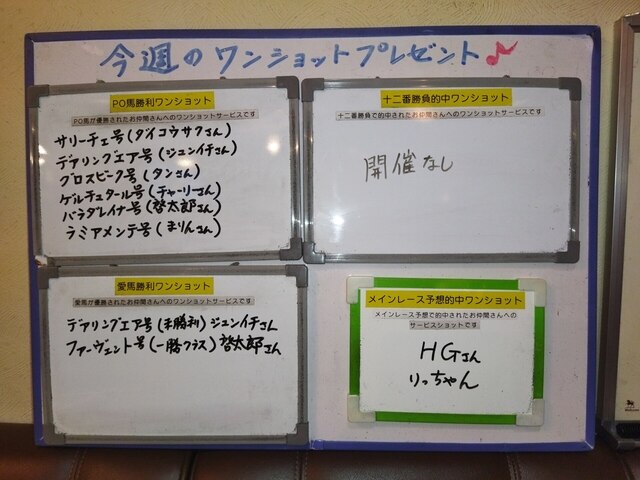 今週のワンショットプレゼント♪
PO馬勝利ワンショット
PO馬が優勝されたお仲間さんへのワンショットサービスです
サリーチェ号(ダイコウサクさん)
デアリングエア号(ジュンイチさん)
グロスビーク号(タンさん)
ゲルチュタール号(チャーリーさん)
パラダレイナ号(啓太郎さん)
ラミアメンテ号(まりんさん)
十二番勝負的中ワンショット
十二番勝負で的中されたお仲間さんへのワンショットサービスです
開催なし
愛馬勝利ワンショット
愛馬が優勝されたお仲間さんへのワンショットサービスです
デアリングエア号(未勝利)ジュンイチさん
ファーヴェント号(一勝クラス)啓太郎さん
メインレース予想的中ワンショット
メインレース予想で的中されたお仲間さんへの
サービスショットです
HGさん
りっちゃん